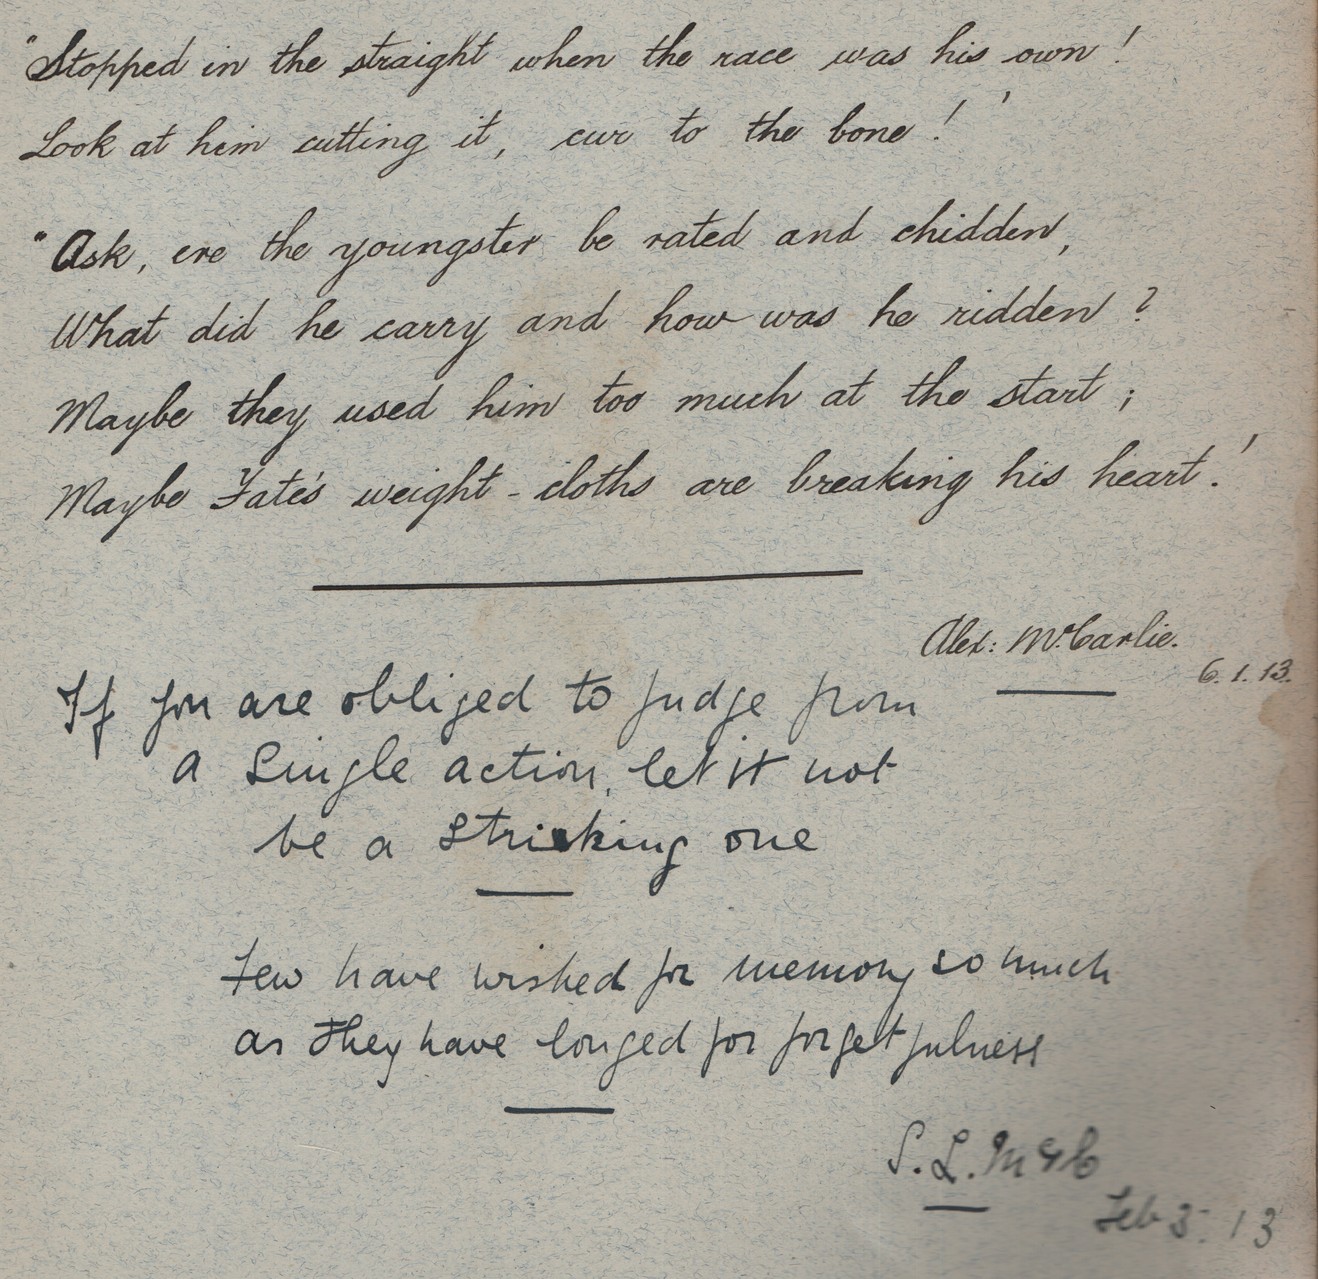 "Stopped in the straight when the race was his own!
Look at him cutting it, cur to the bone!'
"Ask, ere the youngster be rated and chidden,
What did he carry and how was he ridden?
Maybe they used him too much at the start;
Maybe Fate's weight-cloths are breaking his heart.'
Alex: McCarlie.
6.1.13.
If you are obliged to judge from
a single action, let it not
be a striking one
Few have wished for memory so much
as they have longed for forgetfulness
S. L. McC
Feb 3: 13